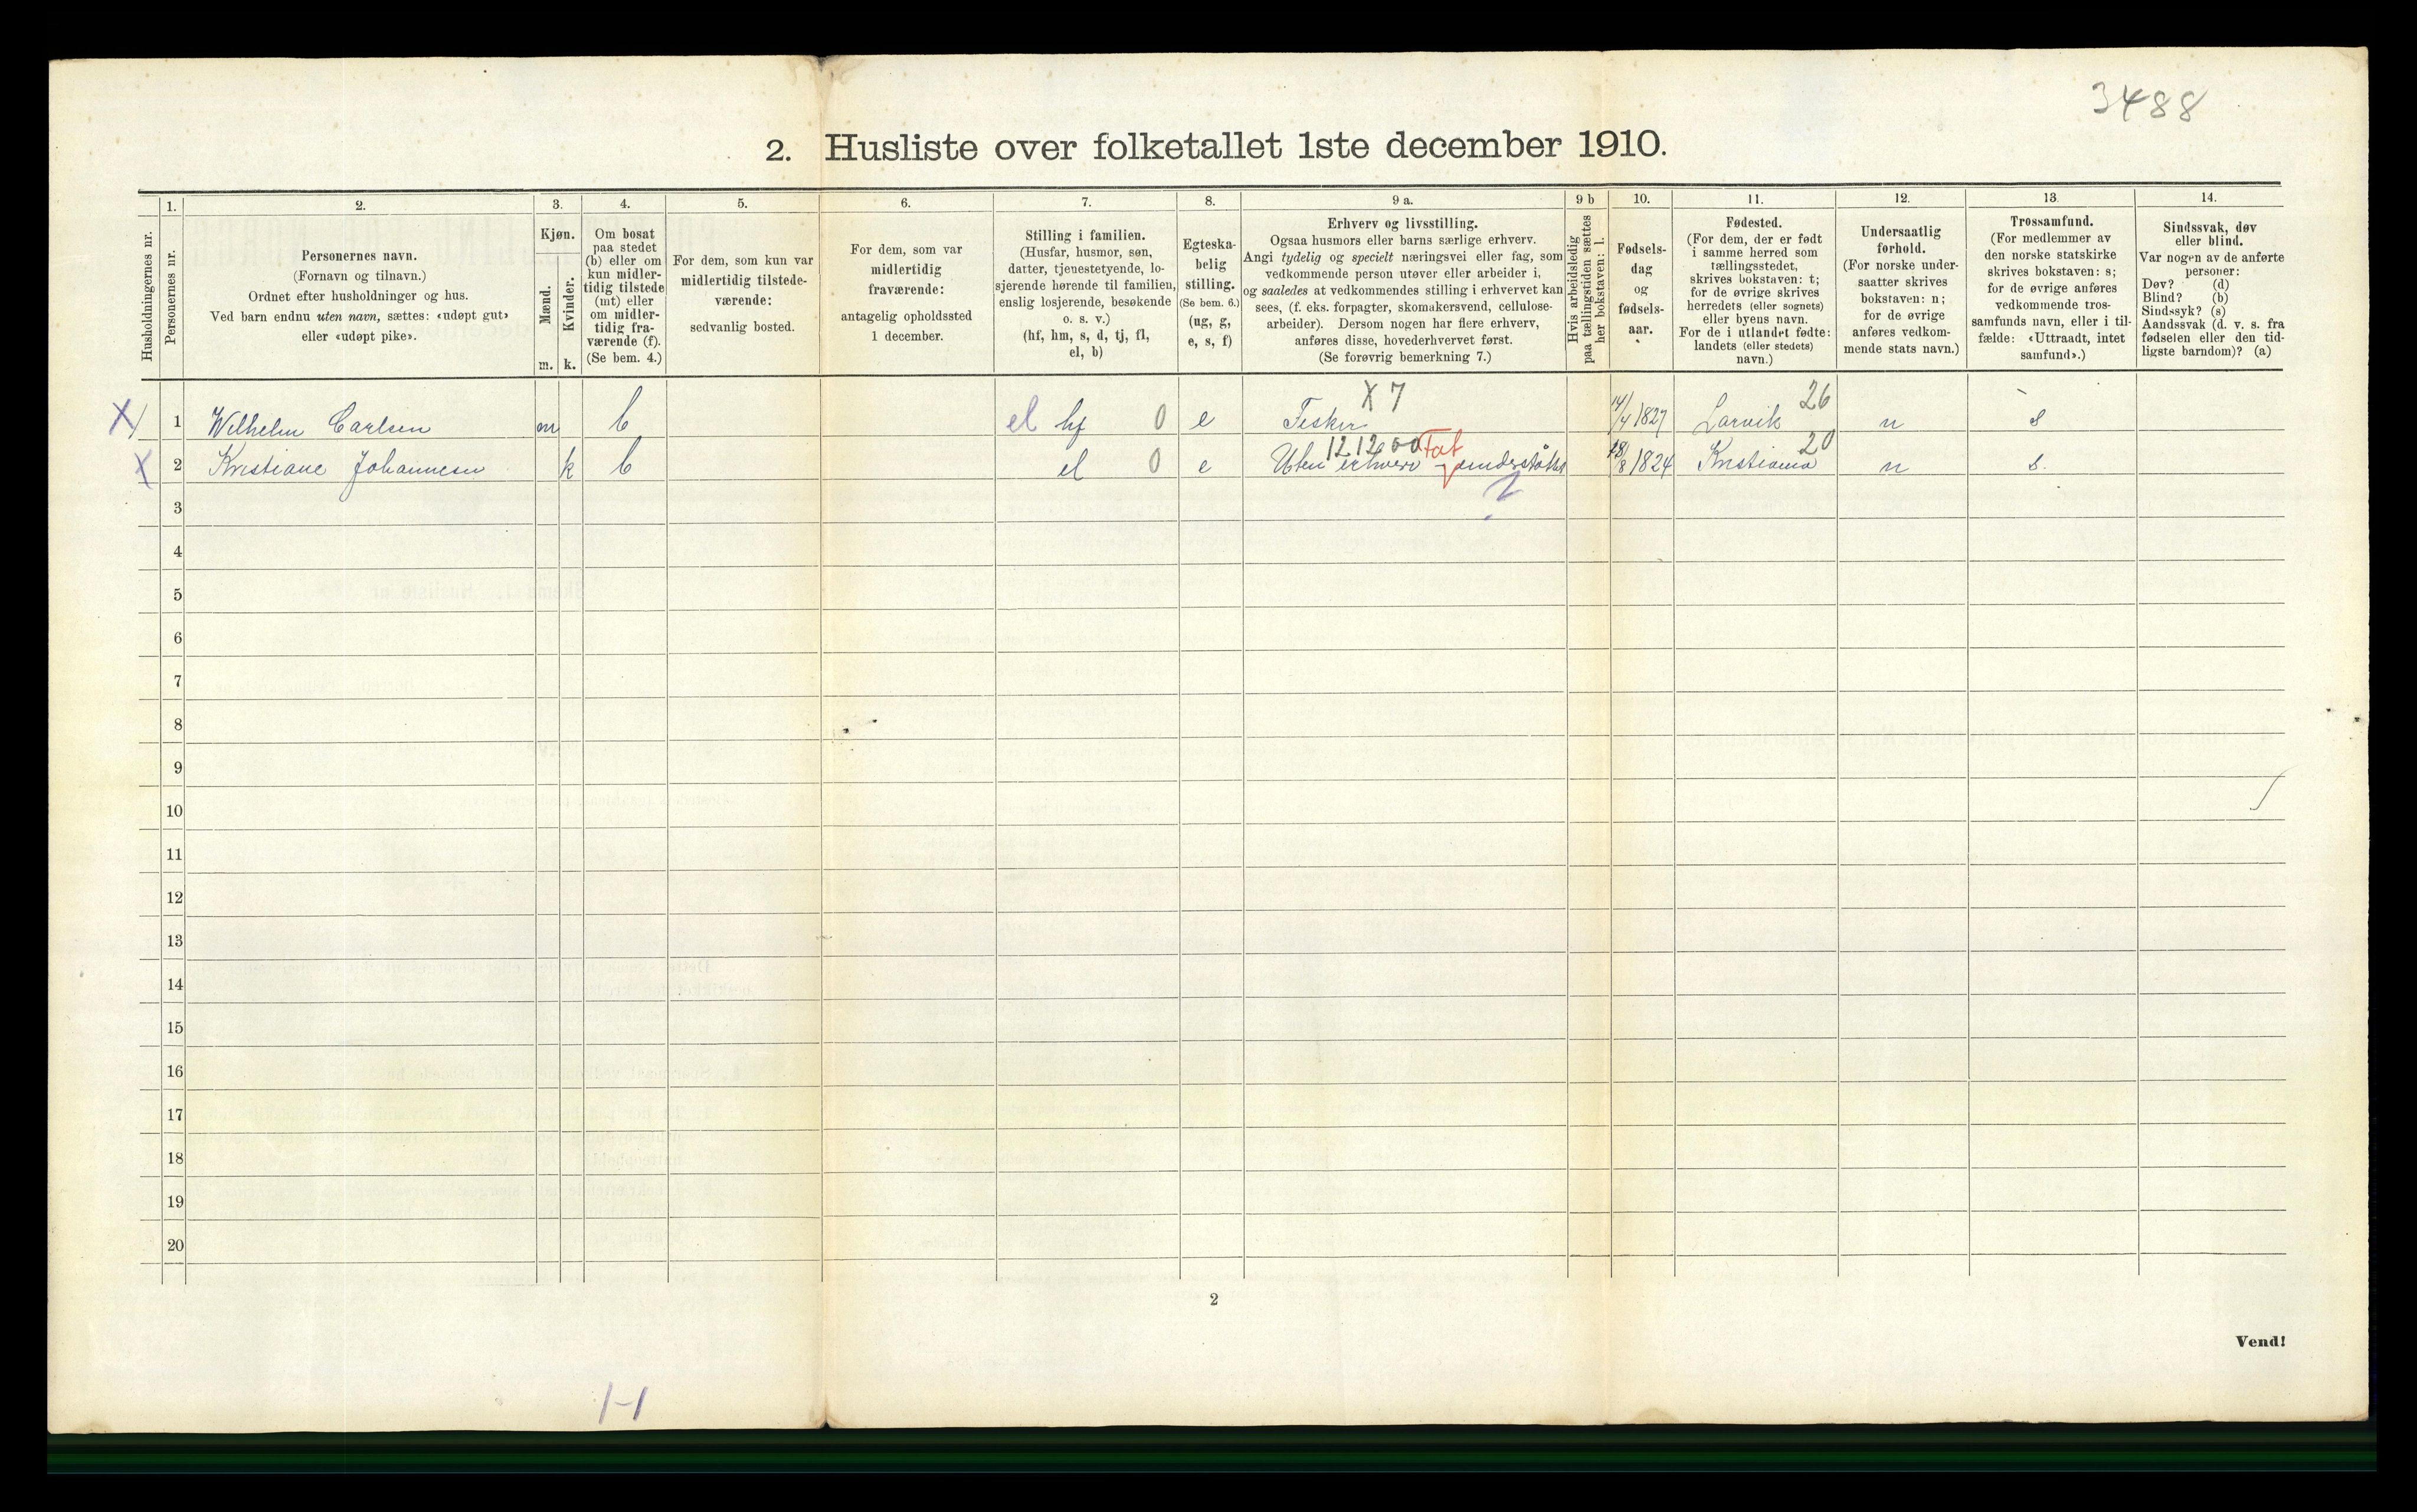 3488
2. Husliste over folketallet 1ste december 1910.
Husholdningernes nr.
1.
Personernes nr.
2.
Personernes navn.
(Fornavn og tilnavn.)
Ordnet efter husholdninger og hus.
Ved barn endnu uten navn, sættes: «udøpt gut»
eller «udøpt pike».
3.
Kjøn.
Mænd.
Kvinder.
m. k.
4.
Om bosat
paa stedet
(b) eller om
kun midler-
tidig tilstede
(mt) eller
om midler-
tidig fra-
værende (f).
(Se bem. 4.)
5.
For dem, som kun var
midlertidig tilstede-
værende:
sedvanlig bosted.
6.
For dem, som var
midlertidig
fraværende:
antagelig opholdssted
1 december.
7.
Stilling i familien.
(Husfar, husmor, søn,
datter, tjenestetyende, lo-
sjerende hørende til familien,
enslig losjerende, besøkende
o. s. v.)
(hf, hm, s, d, tj, fl,
el, b)
8.
Egteska-
belig
stilling.
(Se bem. 6.)
(ug, g,
e, s, f)
9 a.
Erhverv og livsstilling.
Ogsaa husmors eller barns særlige erhverv.
Angi tydelig og specielt næringsvei eller fag, som
vedkommende person utøver eller arbeider i,
og saaledes at vedkommendes stilling i erhvervet kan
sees, (f. eks. forpagter, skomakersvend, cellulose-
arbeider). Dersom nogen har flere erhverv,
anføres disse, hovederhvervet først.
(Se forøvrig bemerkning 7.)
9 b
Hvis arbeidsledig
paa tællingstiden sættes
her bokstaven: l.
10.
Fødsels-
dag
og
fødsels-
aar.
11.
Fødested.
(For dem, der er født
i samme herred som
tællingsstedet,
skrives bokstaven: t;
for de øvrige skrives
herredets (eller sognets)
eller byens navn.
For de i utlandet fødte:
landets (eller stedets)
navn.)
12.
Undersaatlig
forhold.
(For norske under-
saatter skrives
bokstaven: n;
for de øvrige
anføres vedkom-
mende stats navn.)
13.
Trossamfund.
(For medlemmer av
den norske statskirke
skrives bokstaven: s;
for de øvrige anføres
vedkommende tros-
samfunds navn, eller i til-
fælde: «Uttraadt, intet
samfund».)
14.
Sindssvak, døv
eller blind.
Var nogen av de anførte
personer:
Døv? (d)
Blind? (b)
Sindssyk? (s)
Aandssvak (d. v. s. fra
fødselen eller den tid-
ligste barndom)? (a)
X 7 26
X 1 Wilhelm Carlsen m b el hf 0 e Fisker 14/4 1827 Larvik n s
121200 Fat 20
X 2 Kristiane Johannesen k b el 0 e Uten erhverv - understøttet 18/8 1824 Kristiania n s.
3
4
5
6
7
8
9
10
11
12
13
14
15
16
17
18
19
20
2
Vend!
1-1